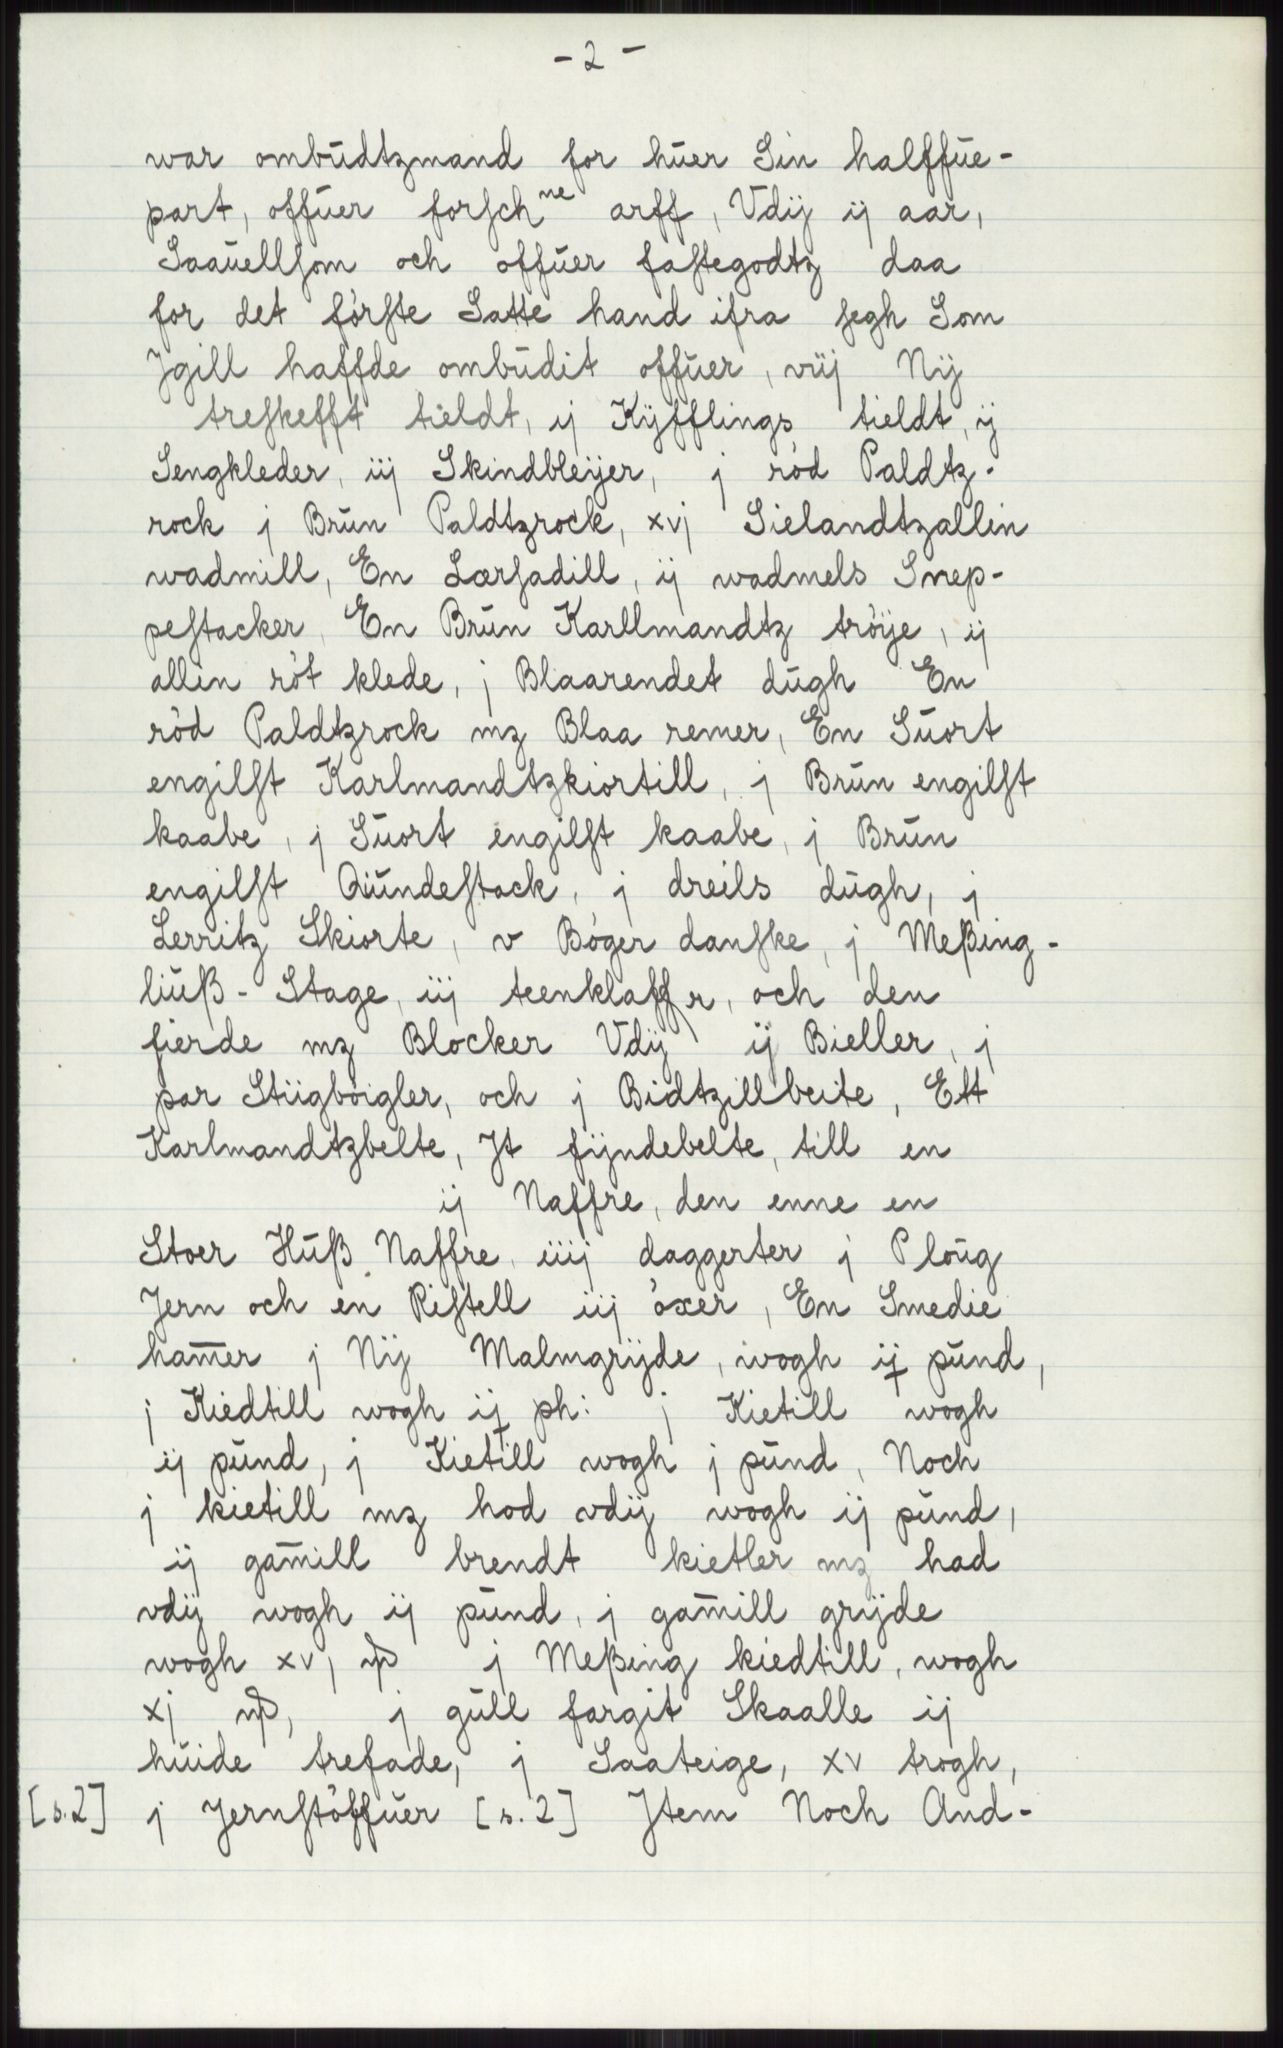 - 2 -
war ombūdtzmand for hūer Sin halffūe-
part, offūer forschne arff, Vdij ij aar,
Saaūellsom och offūer fastegodtz daa
for det förste Satte hand ifra segh Som
Jgill haffde ombūdit offūer, viij Nij
treskefft tieldt, ij Kijfflings tieldt, ij
Sengkleder, iij Skindbleijer, j röd Paldtz-
rock j Brūn Paldtzrock, xvj Sielandtzallin
wadmill, En Lærsadill, ij wadmels Snep-
pestacker, En Brūn Karllmandtz tröije, ij
allin röt klede, j Blaarendet dūgh En
röd Paldtzrock mz Blaa remer, En Sūort
engilst Karlmandtzkiortill, j Brūn engilst
kaabe, j Sūort engilst kaabe, j Brūn
engilst Qūindestack, j dreils dūgh, j
Lerritz Skiorte, v Böger danske, j Meßing-
liūß-Stage, iij teenklaffr, och den
fierde mz Blocker Vdij ij Bieller, j
par Stiigböigler, och j Bidtzillbeite, Ett
Karlmandtzbelte, Jt fijndebelte, till en
ij Naffre, den enne en
Stoer Hūß Naffre, iiij daggerter j Ploūg
Jern och en Ristell iij öxer, En Smedie
ham̄er j Nij Malmgrijde, wogh ij pūnd,
j Kiedtill wogh ij ph: j Kietill wogh
ij pūnd, j Kietill wogh j pūnd, Noch
j kietill mz hod vdij wogh ij pūnd,
ij gam̄ill brendt kietler mz had
vdij wogh ij pūnd, j gam̄ill grijde
wogh xvj j Meßing kiedtill, wogh
xj j gūll fargit Skaalle ij
hūide trefade, j Saateige, xv trogh,
[s.2] j Jernstöffūer [s.2] Jtem Noch And-